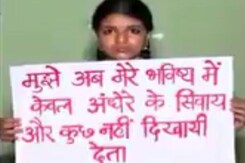 मुझे अब मेरे भविष्य में
केवल अंधेरे के सिवाय
और कुछ नहीं दिखायी
देता